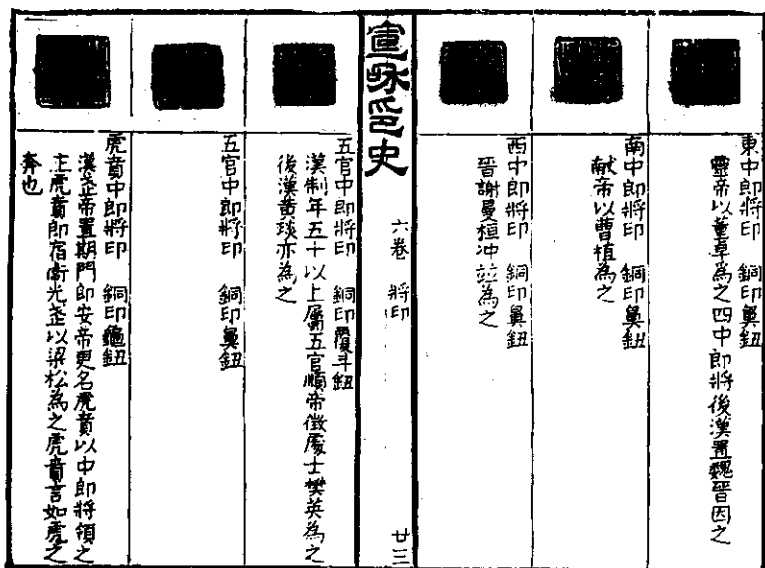 東中郎將印　銅印鼻鈕
靈帝以董卓爲之四中郎將後漢置魏晉因之
南中郎將印　銅印鼻鈕
献帝以曹植為之
西中郎將印　銅印鼻鈕
晉謝曼桓冲竝為之
宣和印史
六卷　將印
廿三
五官中郎將印　銅印覆斗鈕
漢制年五十以上屬五官順帝徵處士樊英為之
後漢黄琰亦為之
五官中郎將印　銅印鼻鈕
虎賁中郎將印　銅印龜鈕
漢武帝置期門郎安帝更名虎賁以中郎將領之
主虎賁郎宿衛光武以梁松為之虎賁言如虎之
奔也